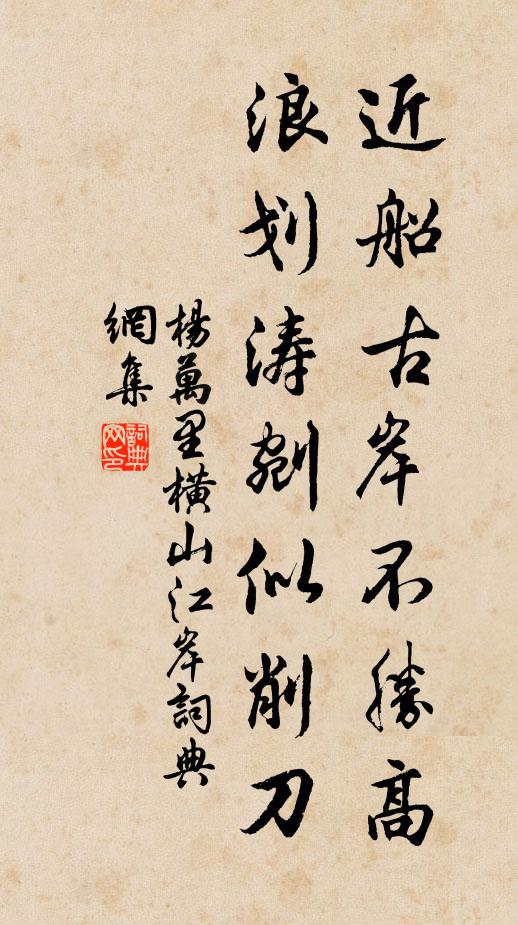 近船古岸不勝高
浪划涛剜似削刀
楊萬里橫山江岸詞典
網集
詞典
网印